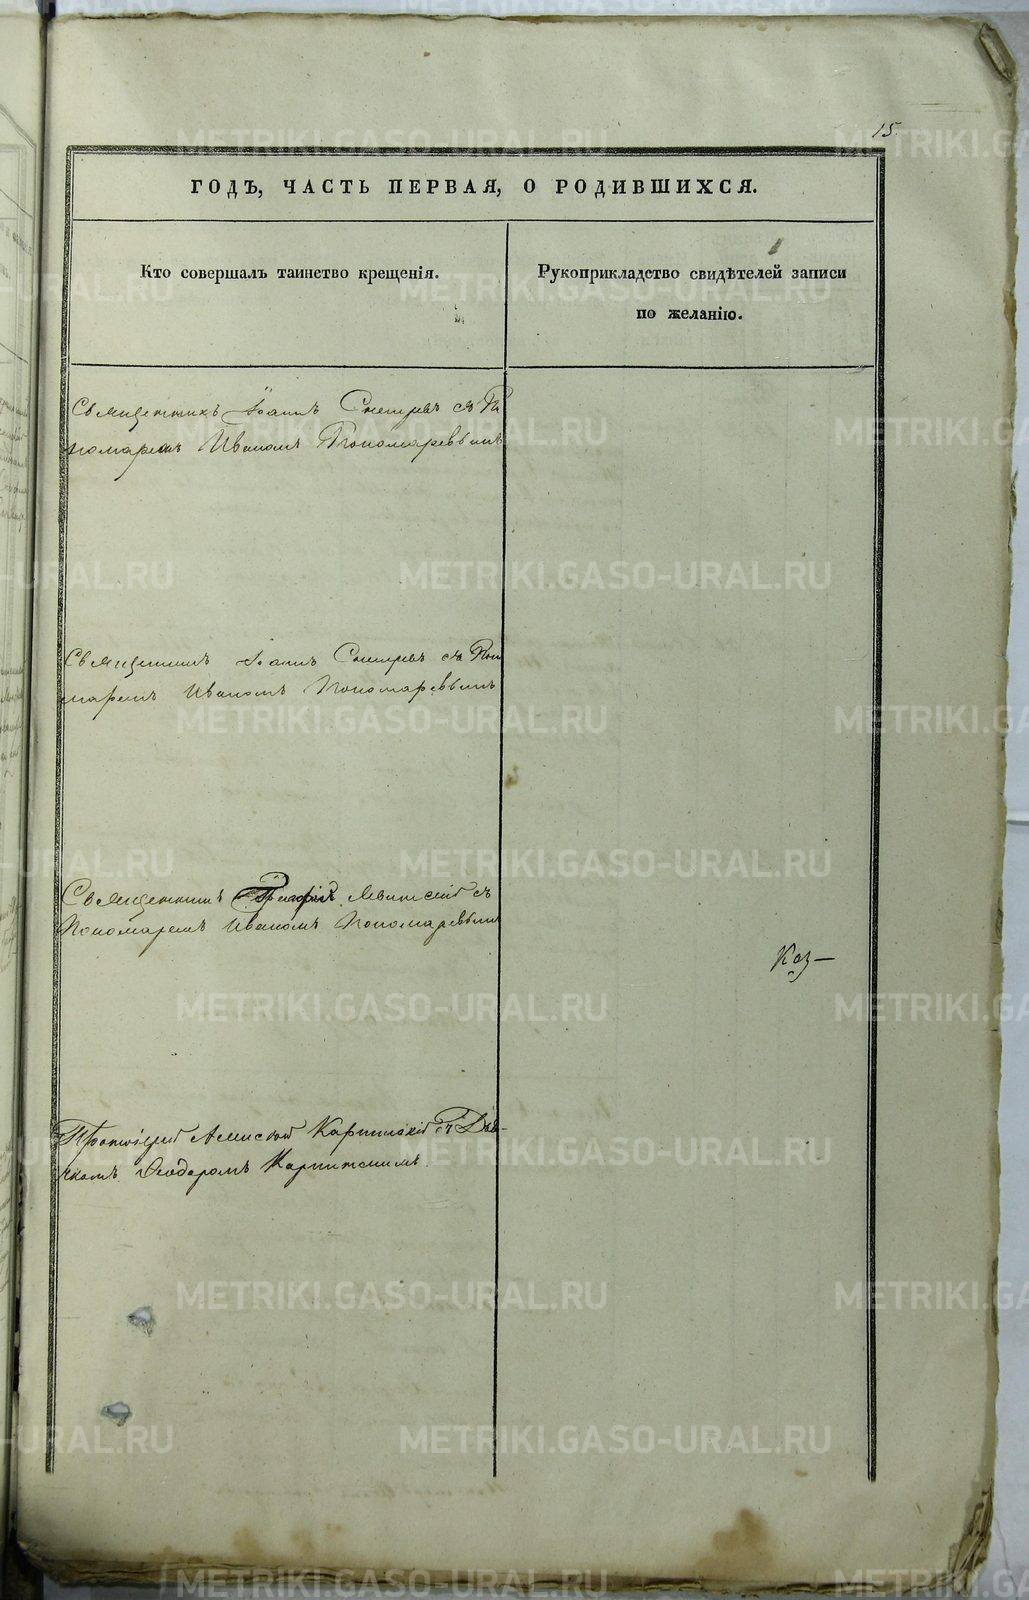 15.
ГОДЪ, ЧАСТЬ ПЕРВАЯ, О РОДИВШИХСЯ.
Кто совершалъ таинство крещенія.
Рукоприкладство свидѣтелей записи
по желанію.
Священникъ Іоаннъ съ По
номаремъ Иваномъ Пономаревымъ
Священникъ Іоаннъ съ Поно
маремъ Иваномъ Пономаревымъ
Священникъ Григорій Левитскій съ
Пономаремъ Иваномъ Пономаревымъ
Коз—
Протоіерей Алексѣй Карпинскій съ Дья-
комъ Ѳеодоромъ Карпинскимъ.
METRIKI.GASO-URAL.RU